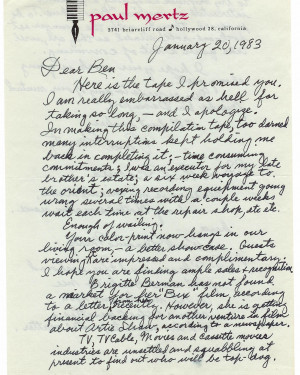 paul mertz
5741 briarcliff road hollywood 28, california
January 20, 1983
Dear Ben
Here is the tape I promised you.
I am really embarrassed as hell for
taking so long, – and I apologize.
In making this compilation tape, too darned
many interruptions kept holding me
back in completing it; – time consuming
commitments; I was an executor for my late
brother's estate; a six week voyage to
the orient; vexing recording equipment going
wrong several times with a couple weeks
wait each time at the repair shop, etc etc.
Enough of wailing.
Your color-print now hangs in our
living room – a better showcase. Guests
viewing it are impressed and complimentary.
I hope you are finding ample sales & recognition.
Brigitte Berman has not found
a market for her Bix film, according
to a letter recently. However she is getting
financial backing for another venture in film
about Artie Shaw, according to a newspaper.
TV, TV Cable, Movies and cassette movies
industries are unsettled and squabbling at
present to find out who will be top-dog.